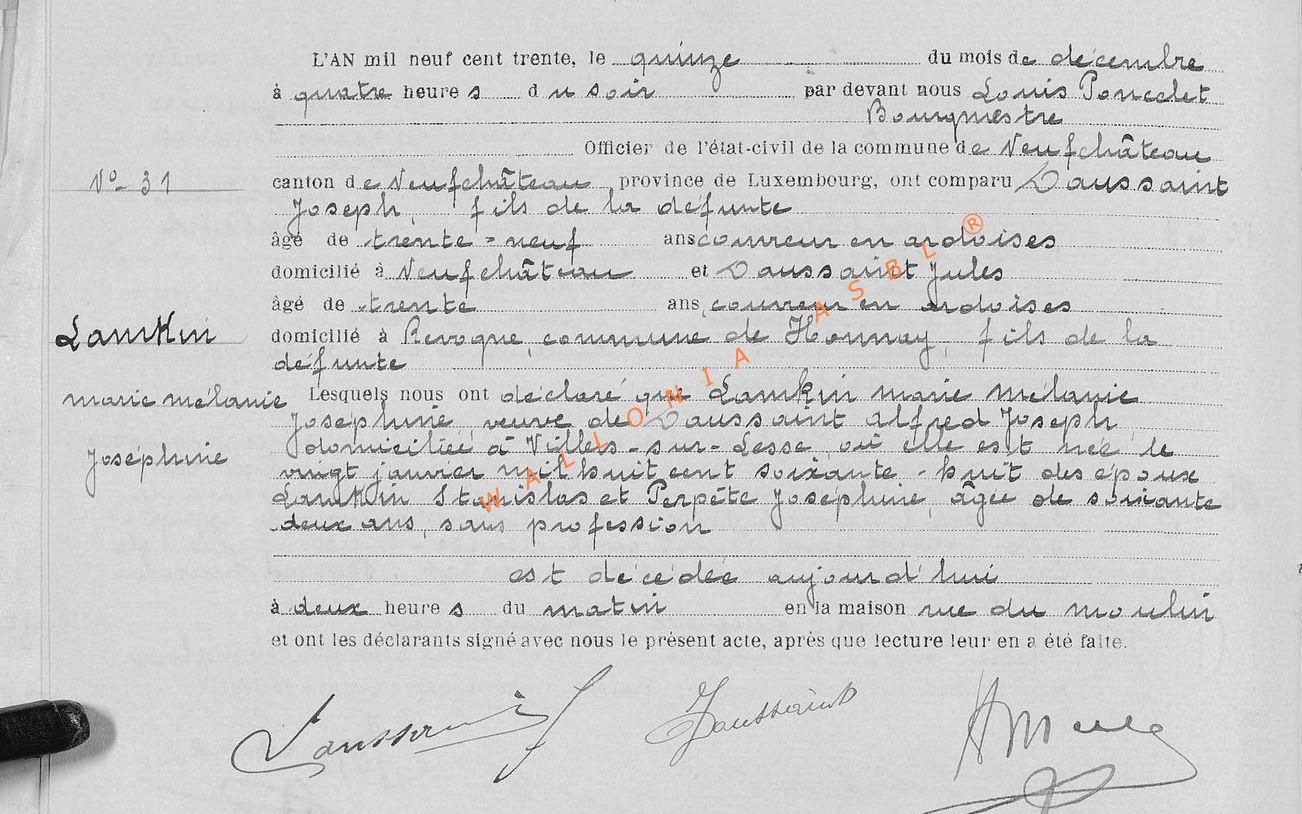 L'AN mil neuf cent trente, le quinze du mois de décembre
à quatre heures du soir par devant nous Louis Poncelet
Bourgmestre
Officier de l'état-civil de la commune de Neufchâteau
N° 31
canton de Neufchâteau province de Luxembourg, ont comparu Daussaint
Joseph, fils de la défunte
âgé de trente-neuf ans couvreur en ardoises
domicilié à Neufchâteau et Daussaint Jules
âgé de trente ans, couvreur en ardoises
Lamkin
domicilié à Revogne, commune de Honnay, fils de la
défunte
marie mélanie
Lesquels nous ont déclaré que Lamkin marie mélanie
Joséphine veuve de Daussaint Alfred Joseph
Joséphine
domiciliée à Villers-sur-Lesse, où elle est née le
vingt janvier mil huit cent soixante-huit des époux
Lamkin Stanislas et Perpète Joséphine, âgée de soixante
deux ans, sans profession
est décédée aujourd'hui
à deux heures du matin en la maison rue du moulin
et ont les déclarants signé avec nous le présent acte, après que lecture leur en a été faite.
Daussaint J
Daussaint
WALLONIA ASBL ®